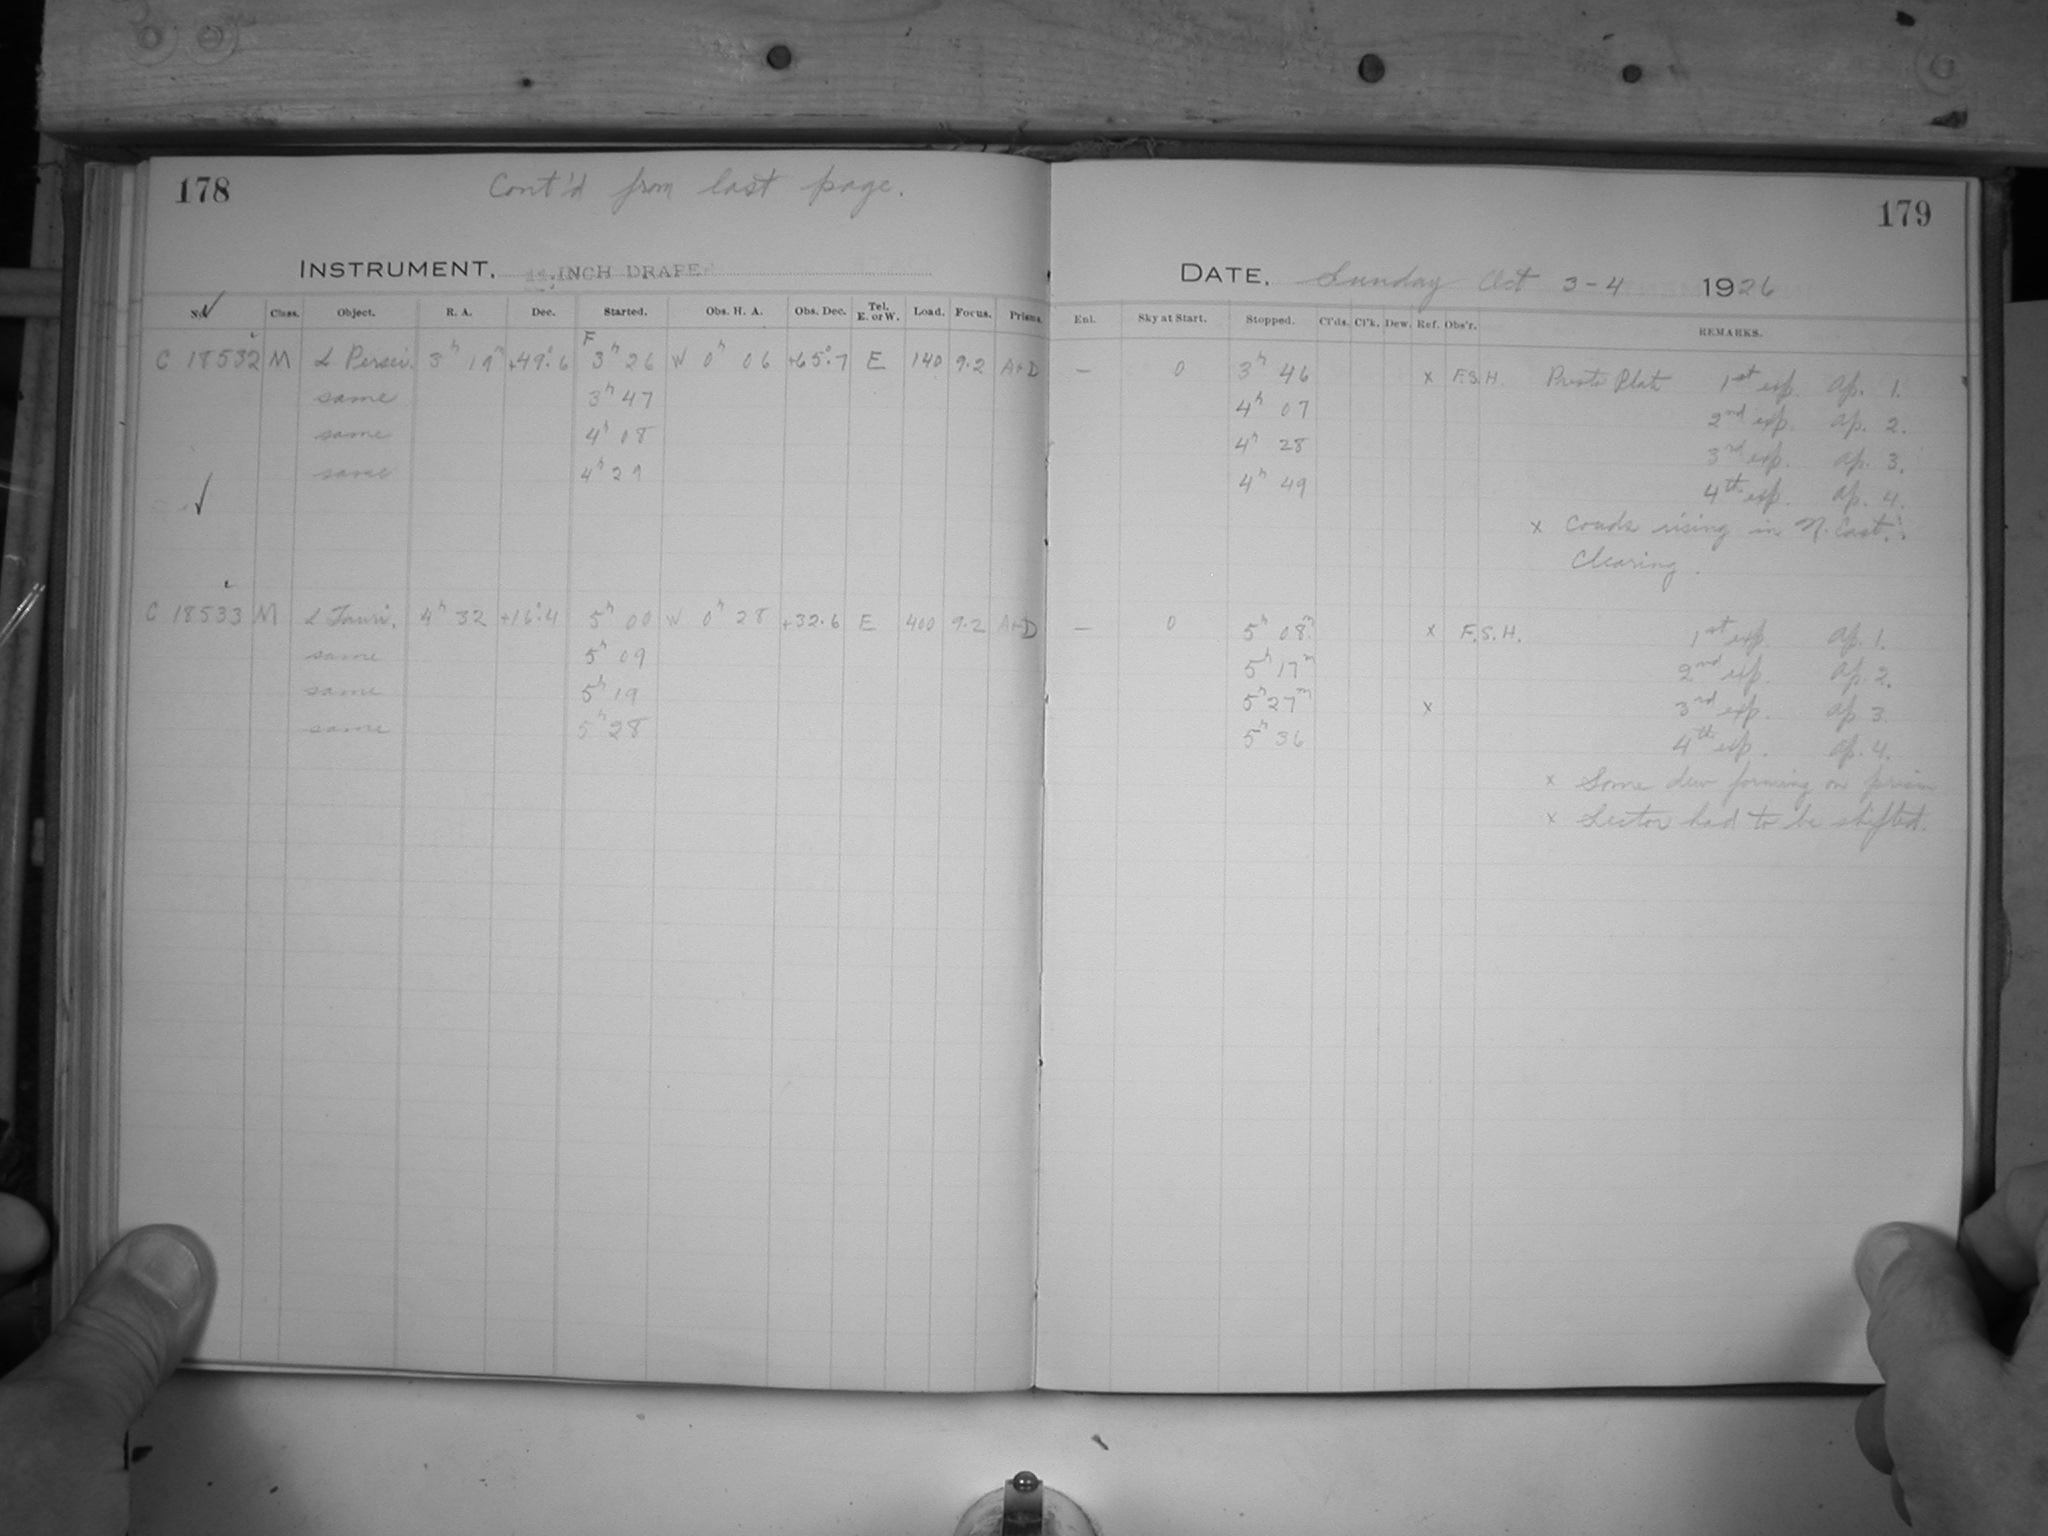 178
Cont'd from last page.
INSTRUMENT. INCH DRAPE
No. Class. Object. R. A. Dec. Started. Obs. H. A. Obs. Dec. Tel. E. or W. Load. Focus. Prisms.
F
C 18532 M α Persei. 3h 19m +49°.6 3h 26 W 0h 06 +65°.7 E 140 9.2 A+D
same 3h 47
same 4h 08
same 4h 29
C 18533 M α Tauri. 4h 32 +16°.4 5h 00 W 0h 28 +32.6 E 400 9.2 A+D
same 5h 09
same 5h 19
same 5h 28
179
DATE. Sunday Oct 3-4 1926
Enl. Sky at Start. Stopped. Cl'ds. Cl'k. Dew. Ref. Obs'r. REMARKS.
— 0 3h 46 x F.S.H. Presto Plat 1st exp. Ap. 1.
4h 07 2nd exp. Ap. 2.
4h 28 3rd exp. Ap. 3.
4h 49 4th exp. Ap. 4.
x Couds rising in N. East.
Clearing.
— 0 5h 08m x F.S.H. 1st exp. Ap. 1.
5h 17m 2nd exp. Ap. 2.
5h 27m x 3rd exp. Ap 3.
5h 36 4th exp. Ap. 4.
x Some dew forming on prism
x Sector had to be shifted.